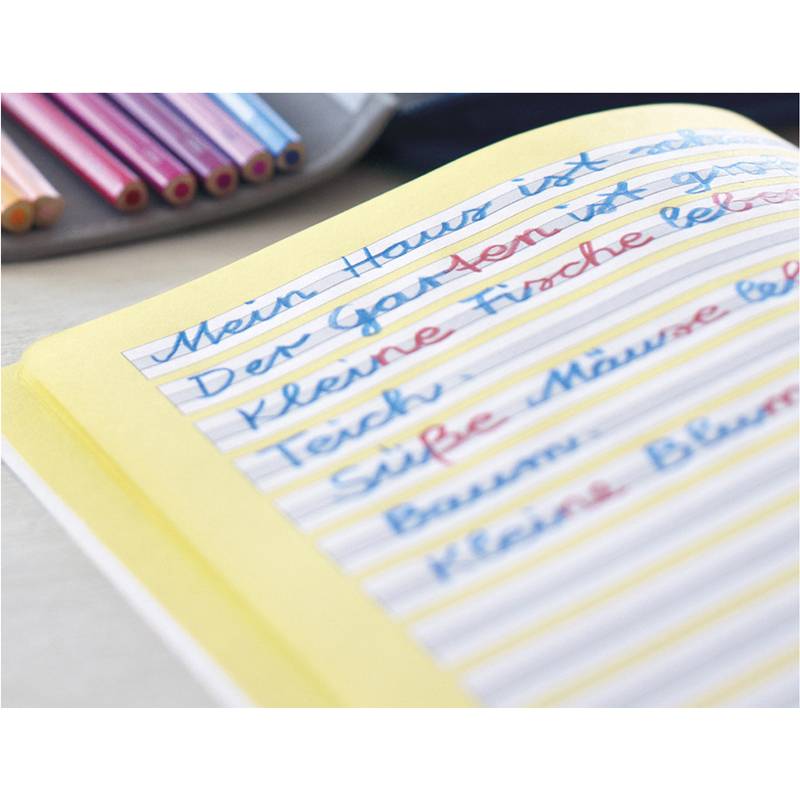 Mein Haus ist schön
Der Garten ist
Kleine Fische leben
Teich.
Süße Mäuse
Baum.
Kleine